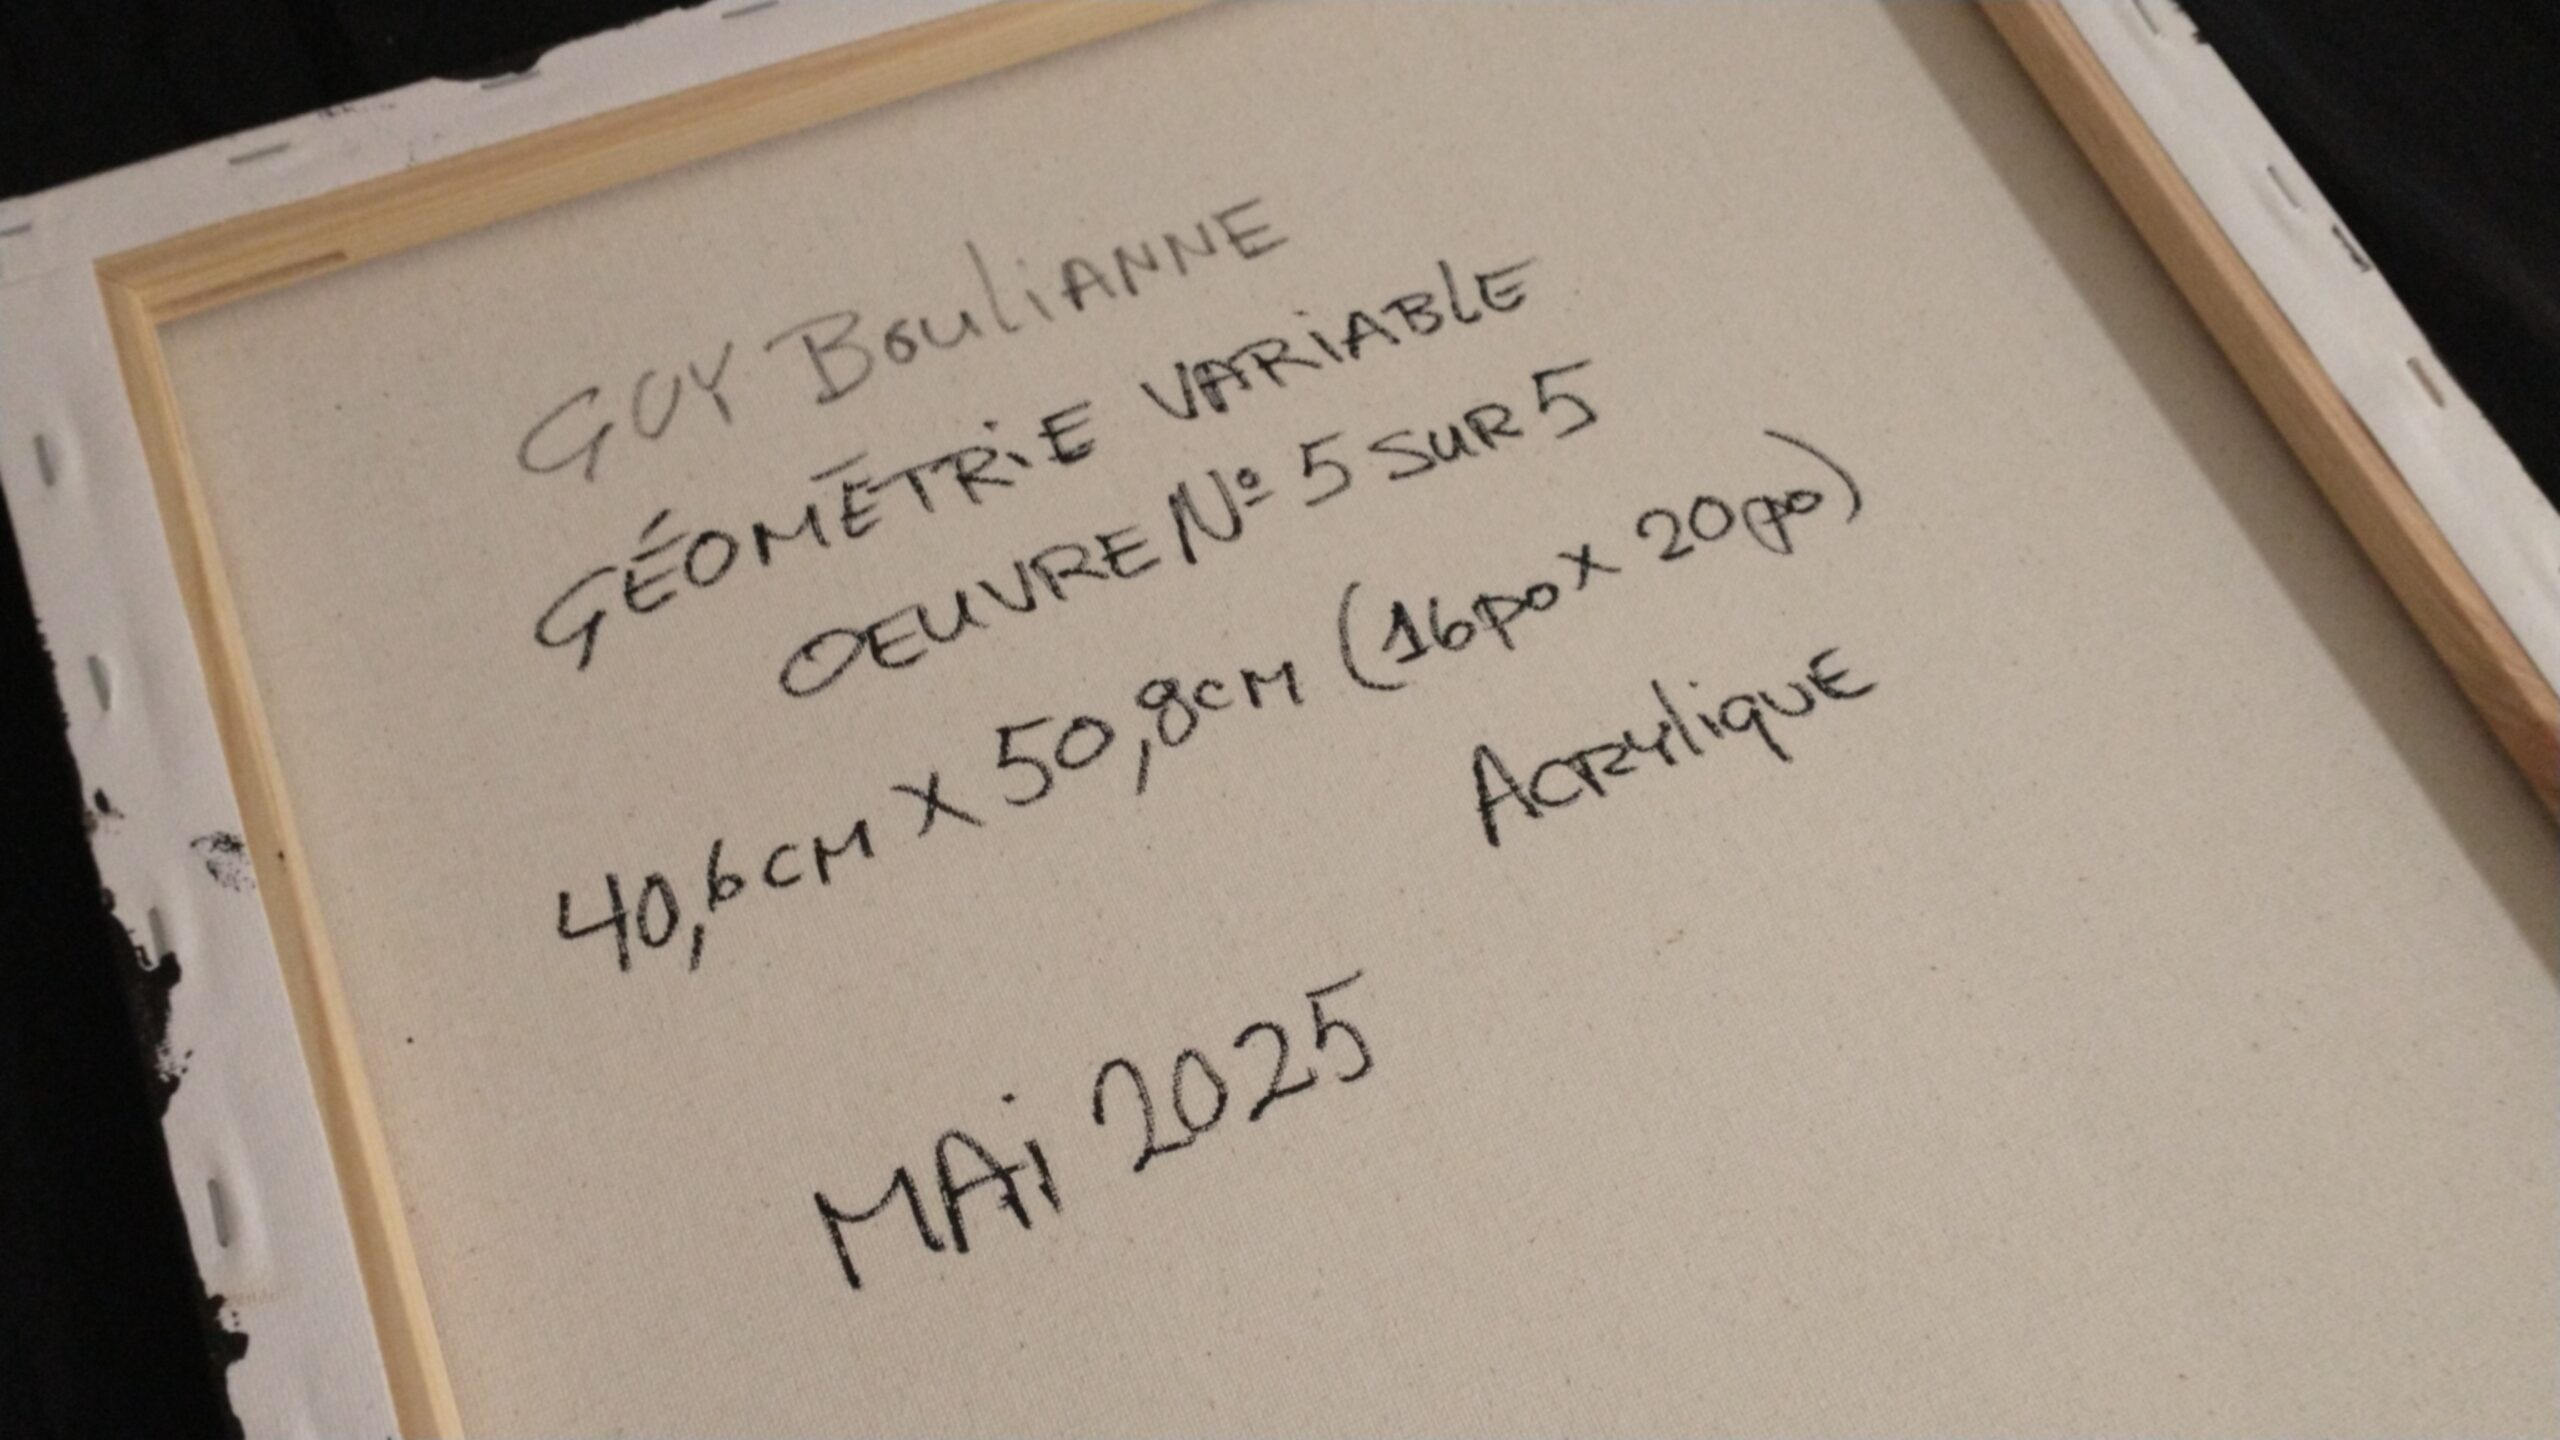 GUY BOULIANNE
GÉOMÉTRIE VARIABLE
OEUVRE Nº 5 SUR 5
40,6 CM X 50,8 CM (16 po x 20 po)
ACRYLIQUE
MAI 2025